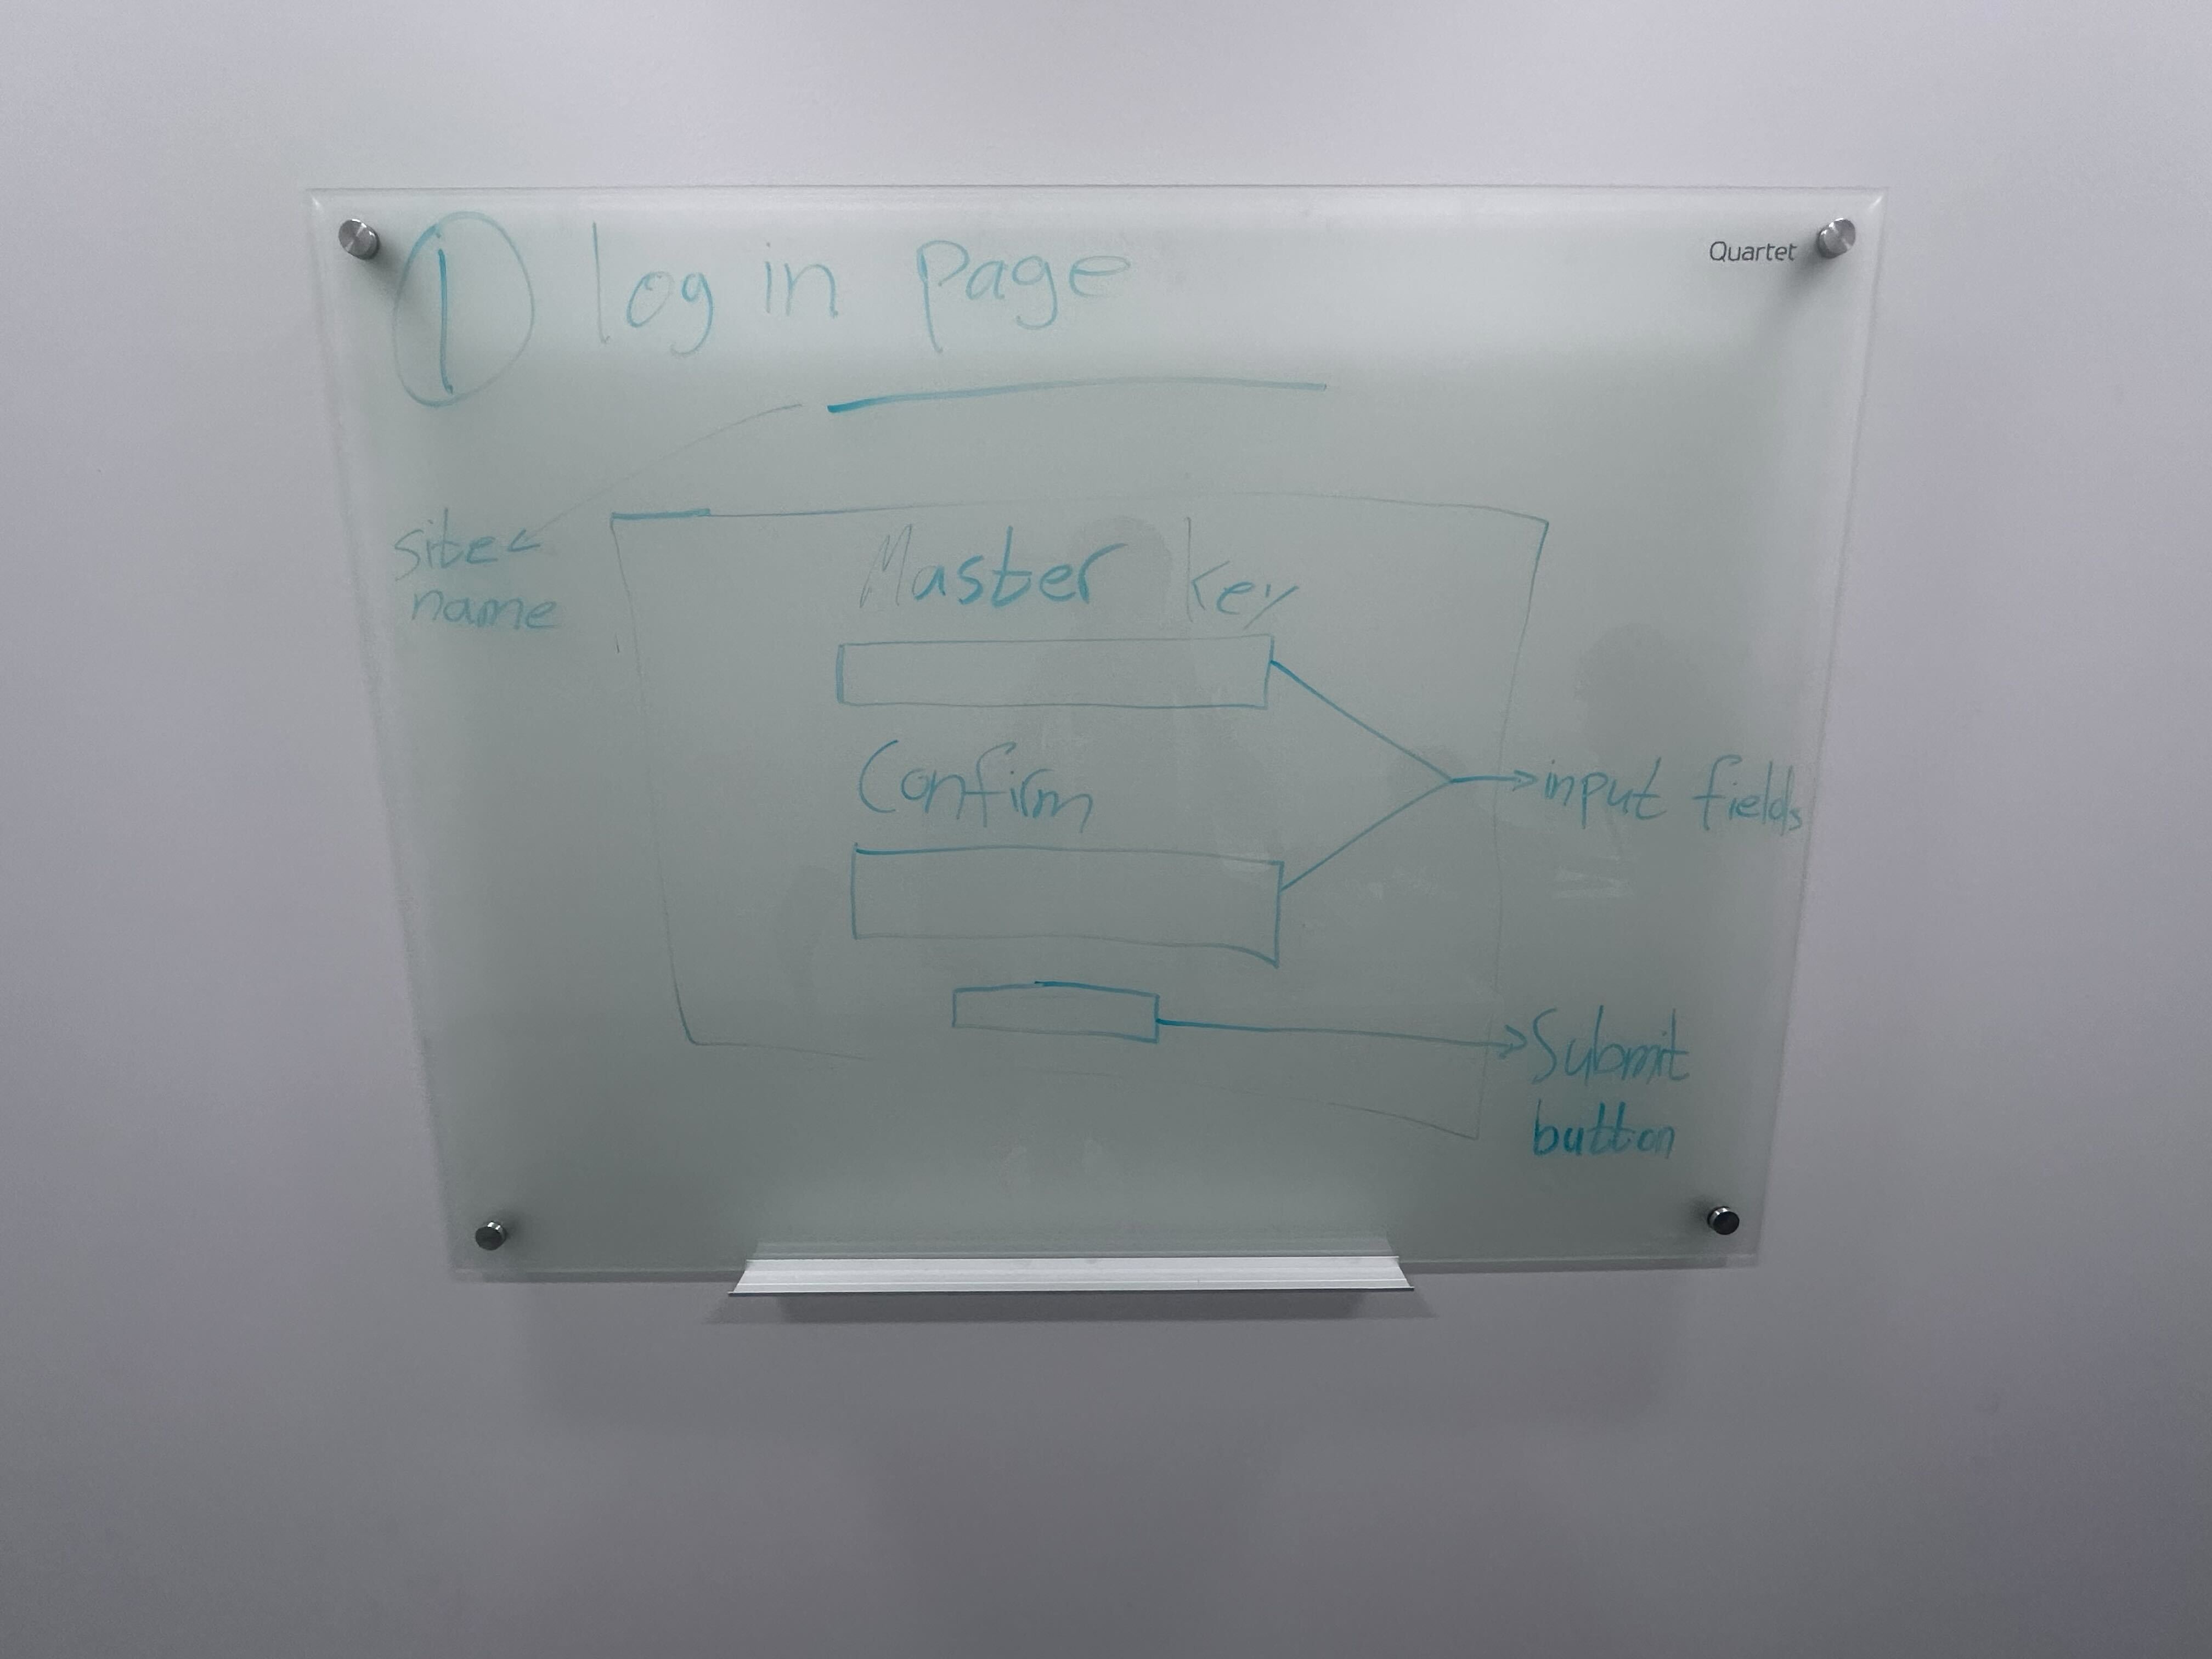 1 log in page
Quartet
site
name
Master key
Confirm
input fields
Submit
button